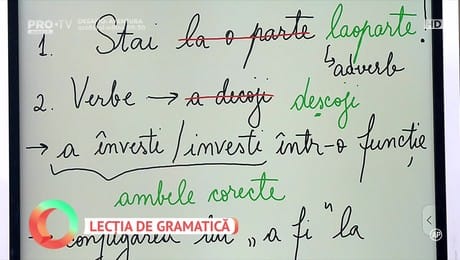 PRO•TV
HD
1. Stai la o parte laoparte!
↳ adverb
2. Verbe → a decoji descoji
→ a învesti / investi într-o funcție
ambele corecte
LECȚIA DE GRAMATICĂ
→ conjugarea lui „a fi" la